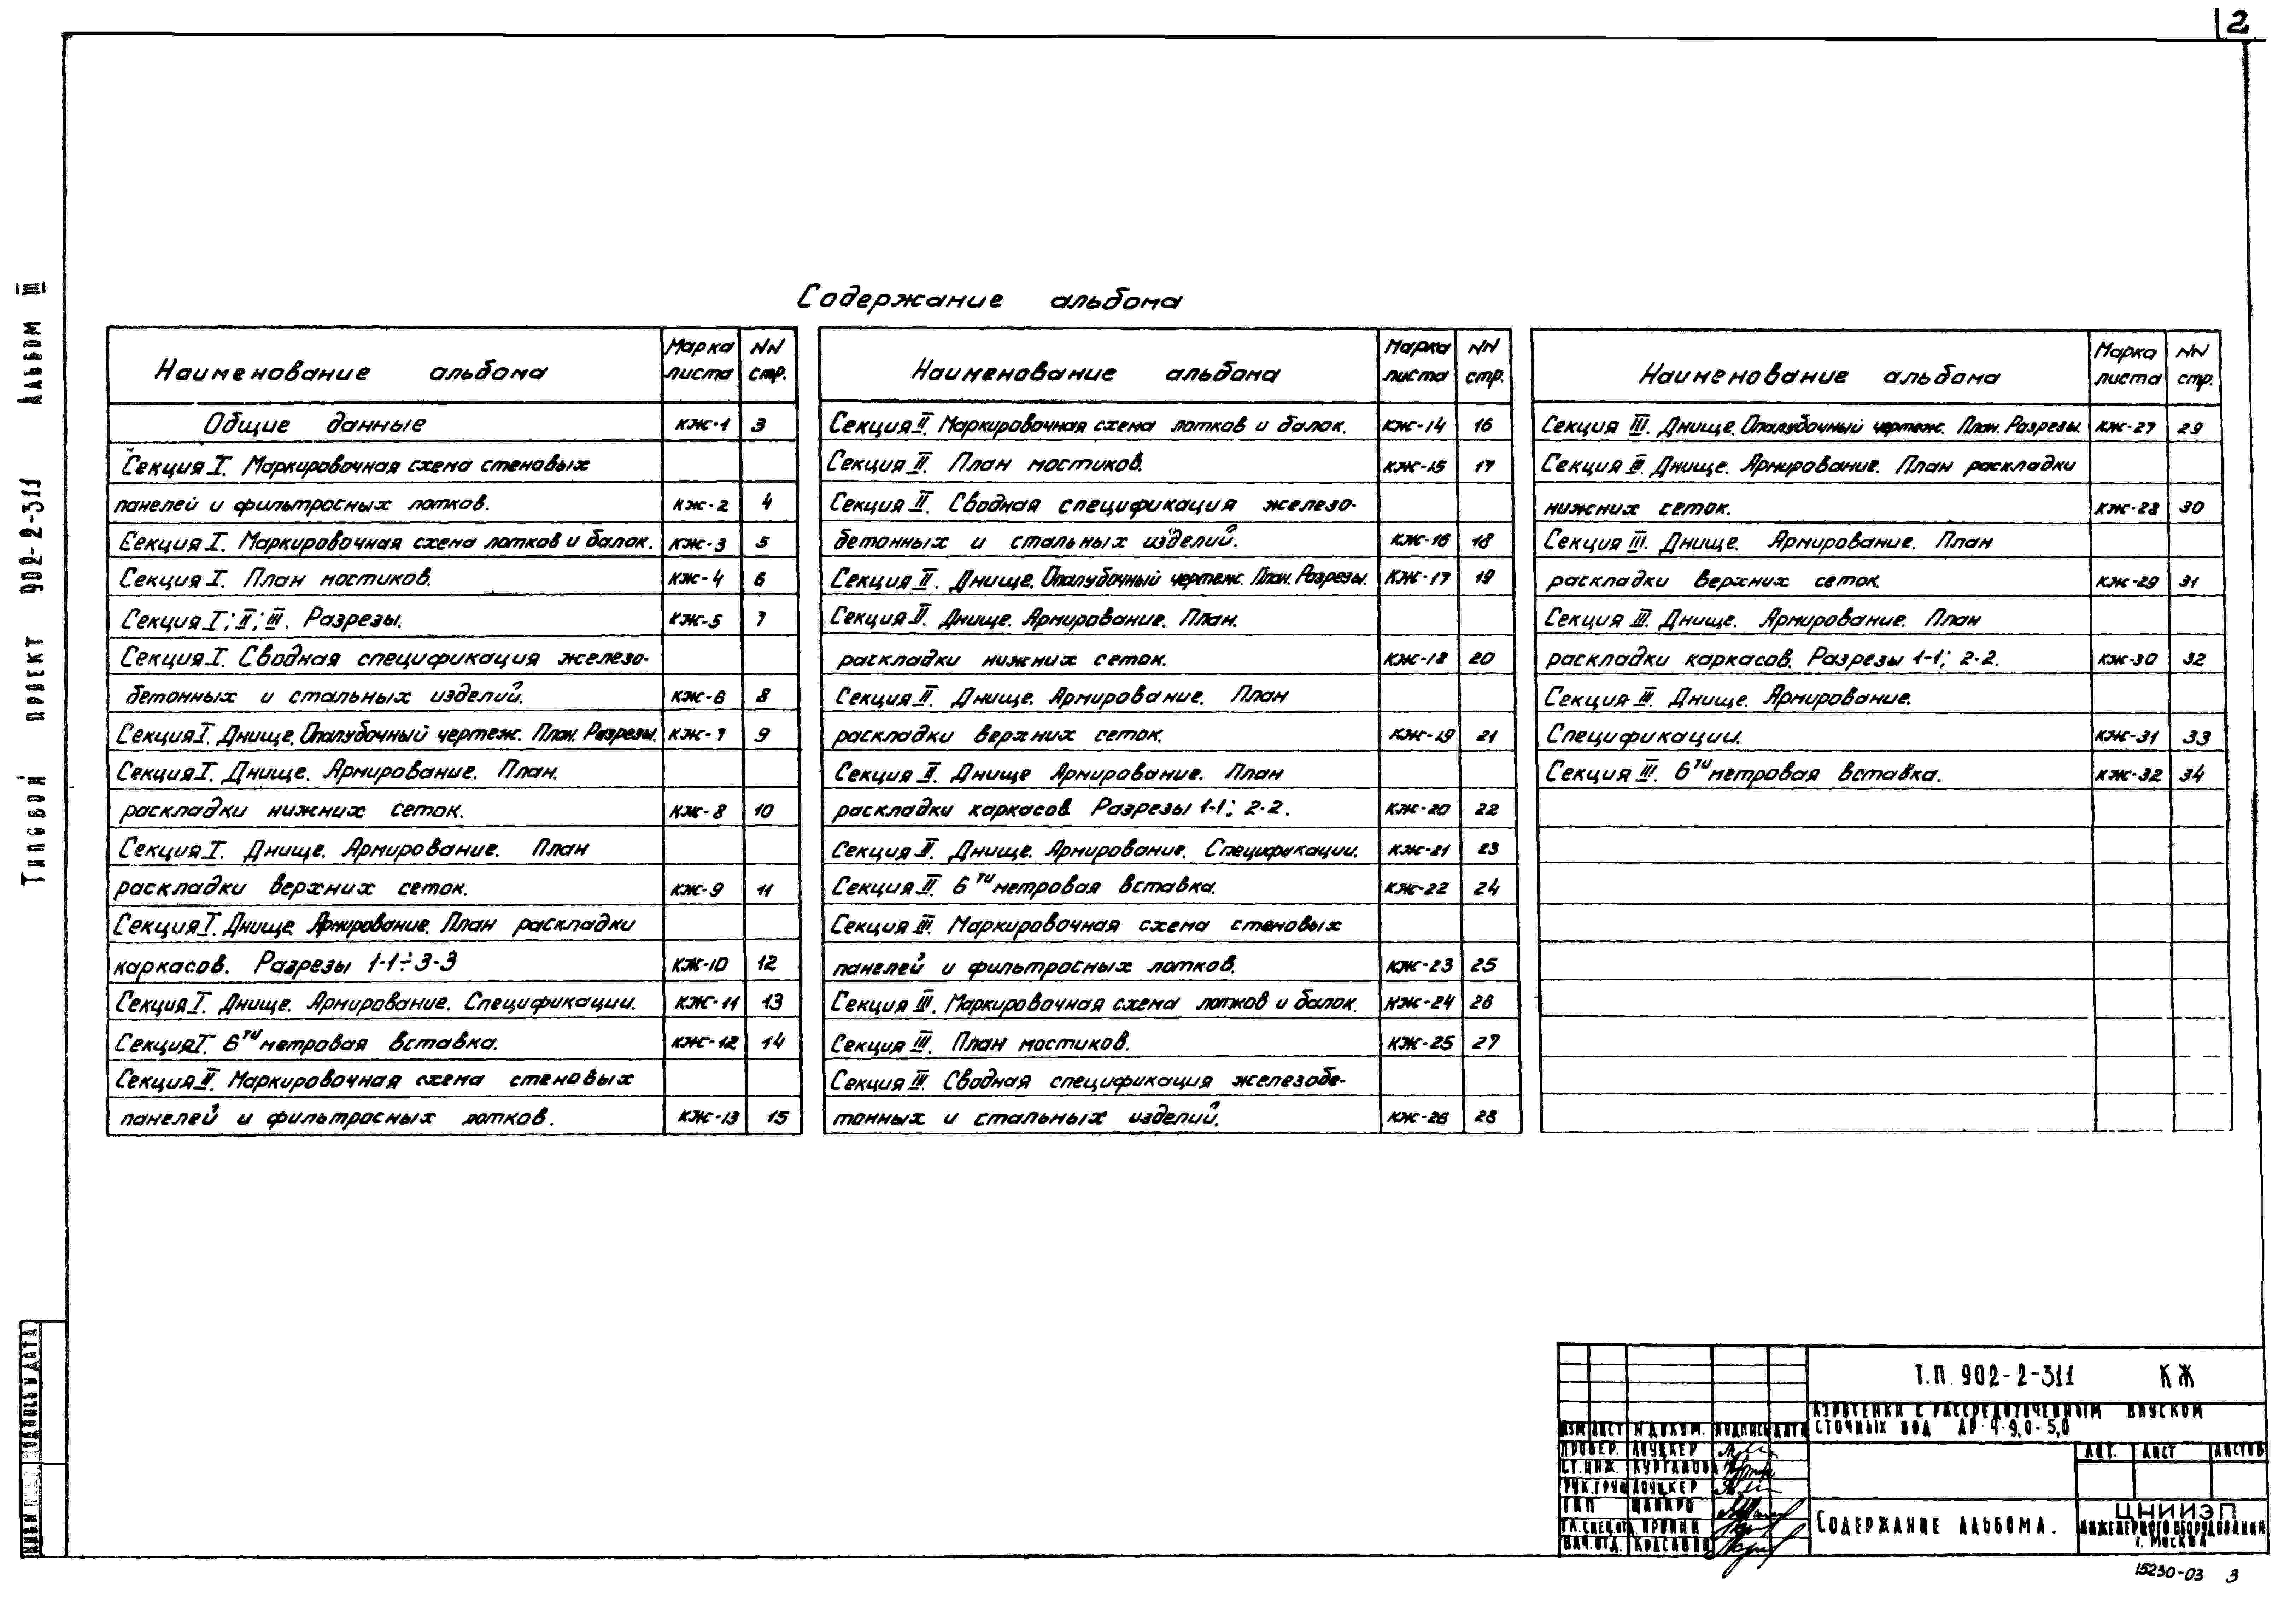 2
Содержание альбома
Наименование альбома
Марка листа
NN стр.
Общие данные КЖ-1 3
Секция I. Маркировочная схема стеновых
панелей и фильтросных лотков. КЖ-2 4
Секция I. Маркировочная схема лотков и балок. КЖ-3 5
Секция I. План мостиков. КЖ-4 6
Секция I; II; III. Разрезы. КЖ-5 7
Секция I. Сводная спецификация железо-
бетонных и стальных изделий. КЖ-6 8
Секция I. Днище. Опалубочный чертеж. План. Разрезы. КЖ-7 9
Секция I. Днище. Армирование. План.
раскладки нижних сеток. КЖ-8 10
Секция I. Днище. Армирование. План
раскладки верхних сеток. КЖ-9 11
Секция I. Днище. Армирование. План раскладки
каркасов. Разрезы 1-1÷3-3 КЖ-10 12
Секция I. Днище. Армирование. Спецификации. КЖ-11 13
Секция I. 6ти метровая вставка. КЖ-12 14
Секция II. Маркировочная схема стеновых
панелей и фильтросных лотков. КЖ-13 15
Наименование альбома
Марка листа
NN стр.
Секция II. Маркировочная схема лотков и балок. КЖ-14 16
Секция II. План мостиков. КЖ-15 17
Секция II. Сводная спецификация железо-
бетонных и стальных изделий. КЖ-16 18
Секция II. Днище. Опалубочный чертеж. План. Разрезы. КЖ-17 19
Секция II. Днище. Армирование. План.
раскладки нижних сеток. КЖ-18 20
Секция II. Днище. Армирование. План
раскладки верхних сеток. КЖ-19 21
Секция II. Днище Армирование. План
раскладки каркасов Разрезы 1-1; 2-2. КЖ-20 22
Секция II. Днище. Армирование. Спецификации. КЖ-21 23
Секция II. 6ти метровая вставка. КЖ-22 24
Секция III. Маркировочная схема стеновых
панелей и фильтросных лотков. КЖ-23 25
Секция III. Маркировочная схема лотков и балок. КЖ-24 26
Секция III. План мостиков. КЖ-25 27
Секция III. Сводная спецификация железобе-
тонных и стальных изделий. КЖ-26 28
Наименование альбома
Марка листа
NN стр.
Секция III. Днище. Опалубочный чертеж. План. Разрезы. КЖ-27 29
Секция III. Днище. Армирование. План раскладки
нижних сеток. КЖ-28 30
Секция III. Днище. Армирование. План
раскладки верхних сеток. КЖ-29 31
Секция III. Днище. Армирование. План
раскладки каркасов. Разрезы 1-1; 2-2. КЖ-30 32
Секция III. Днище. Армирование.
Спецификации. КЖ-31 33
Секция III. 6ти метровая вставка. КЖ-32 34
Типовой проект 902-2-311 Альбом III
Подпись и дата
Т.П. 902-2-311 КЖ
Аэротенки с рассредоточенным впуском
сточных вод АР-4-9,0-5,0
Изм Лист N докум. Подпись Дата
Провер. Лоуцкер
Ст. инж. Курганова
Рук. груп Лоуцкер
ГИП Шапиро
Гл. спец. от.
Нач. отд. Красавин
Лит. Лист Листов
Содержание альбома.
ЦНИИЭП
инженерного оборудования
г. Москва
15230-03 3